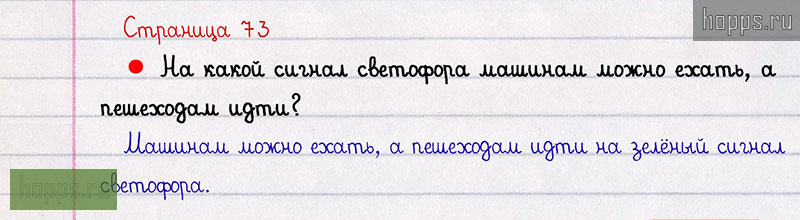 hopps.ru
Страница 73
На какой сигнал светофора машинам можно ехать, а
пешеходам идти?
Машинам можно ехать, а пешеходам идти на зелёный сигнал
светофора.
hopps.ru